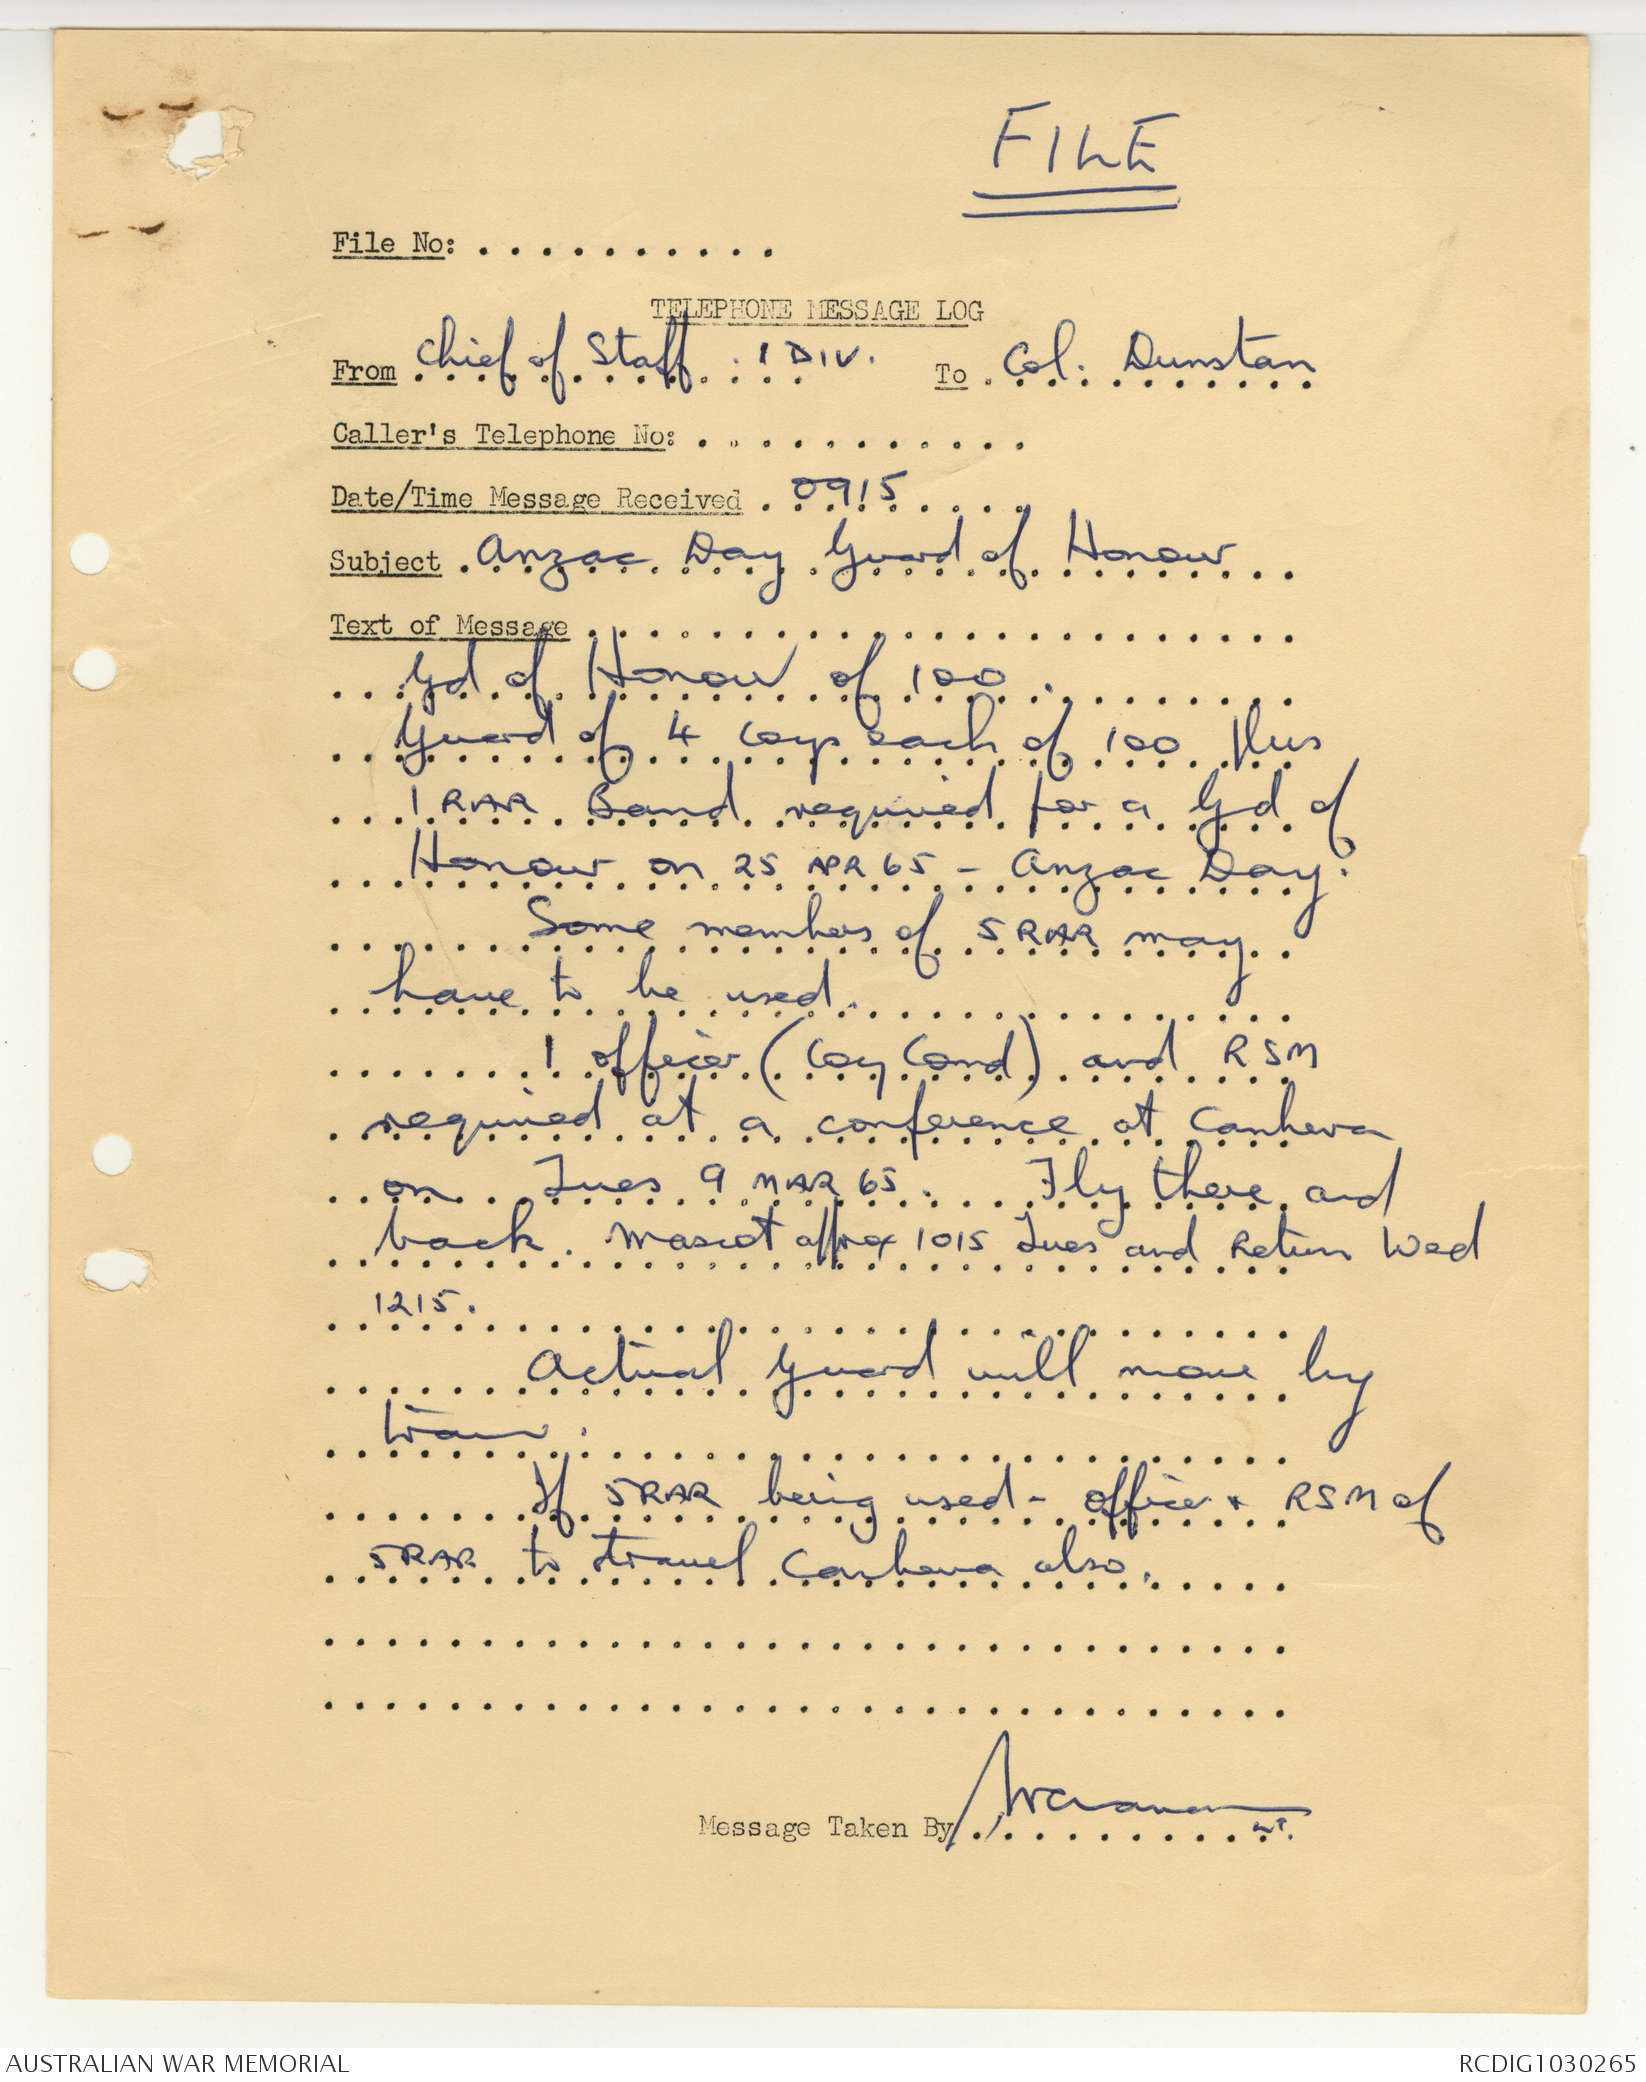 FILE
File No: . . . . . . . . . .
TELEPHONE MESSAGE LOG
From Chief of Staff. 1 DIV. To Col. Dunstan
Caller's Telephone No: . . . . . . . . . . .
Date/Time Message Received . 0915
Subject Anzac Day Guard of Honour
Text of Message
Gd of Honour of 100.
Guard of 4 Coys each of 100 plus
1 RAR Band required for a Gd of
Honour on 25 APR 65 - Anzac Day.
Some members of 5 RAR may
have to be used.
1 officer (Coy Comd) and RSM
required at a conference at Canberra
on Tues 9 MAR 65. Fly there and
back. Mascot approx 1015 Tues and Return Wed
1215.
Actual guard will move by
train.
If 5RAR being used - officer + RSM of
5RAR to travel Canberra also.
Message Taken By
Lt.
AUSTRALIAN WAR MEMORIAL
RCDIG1030265